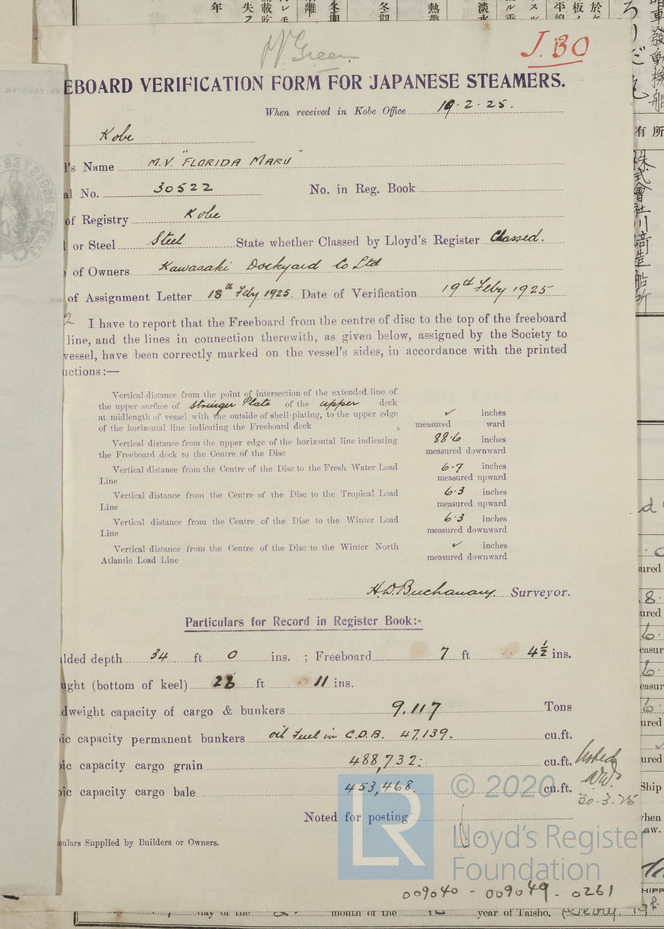 J.BO
EBOARD VERIFICATION FORM FOR JAPANESE STEAMERS.
When received in Kobe Office 19.2.25.
Kobe
's Name M.V. "FLORIDA MARU"
al No. 30522 No. in Reg. Book
of Registry Kobe
l or Steel Steel State whether Classed by Lloyd's Register Classed.
of Owners Kawasaki Dockyard Co Ltd
of Assignment Letter 18th Feby 1925. Date of Verification 19th Feby 1925
I have to report that the Freeboard from the centre of disc to the top of the freeboard
line, and the lines in connection therewith, as given below, assigned by the Society to
vessel, have been correctly marked on the vessel's sides, in accordance with the printed
uctions:—
Vertical distance from the point of intersection of the extended line of
the upper surface of Stringer Plate of the upper deck
at midlength of vessel with the outside of shell-plating, to the upper edge ✓ inches
of the horizontal line indicating the Freeboard deck measured ward
Vertical distance from the upper edge of the horizontal line indicating 88.6 inches
the Freeboard deck to the Centre of the Disc measured downward
Vertical distance from the Centre of the Disc to the Fresh Water Load 6.7 inches
Line measured upward
Vertical distance from the Centre of the Disc to the Tropical Load 6.3 inches
Line measured upward
Vertical distance from the Centre of the Disc to the Winter Load 6.3 inches
Line measured downward
Vertical distance from the Centre of the Disc to the Winter North ✓ inches
Atlantic Load Line measured downward
H.D. Buchanan. Surveyor.
Particulars for Record in Register Book:-
lded depth 34 ft 0 ins. ; Freeboard 7 ft 4½ ins.
ght (bottom of keel) ft 11 ins.
dweight capacity of cargo & bunkers 9.117 Tons
ic capacity permanent bunkers oil fuel in C.D.B. 47,139. cu.ft.
ic capacity cargo grain 488,732: cu.ft.
ic capacity cargo bale 453,468. cu.ft.
30.3.25
Noted for posting
culars Supplied by Builders or Owners.
© 2020
LR Lloyd's Register
Foundation
009040 - 009049 - 0261
day of the month of the year of Taisho.